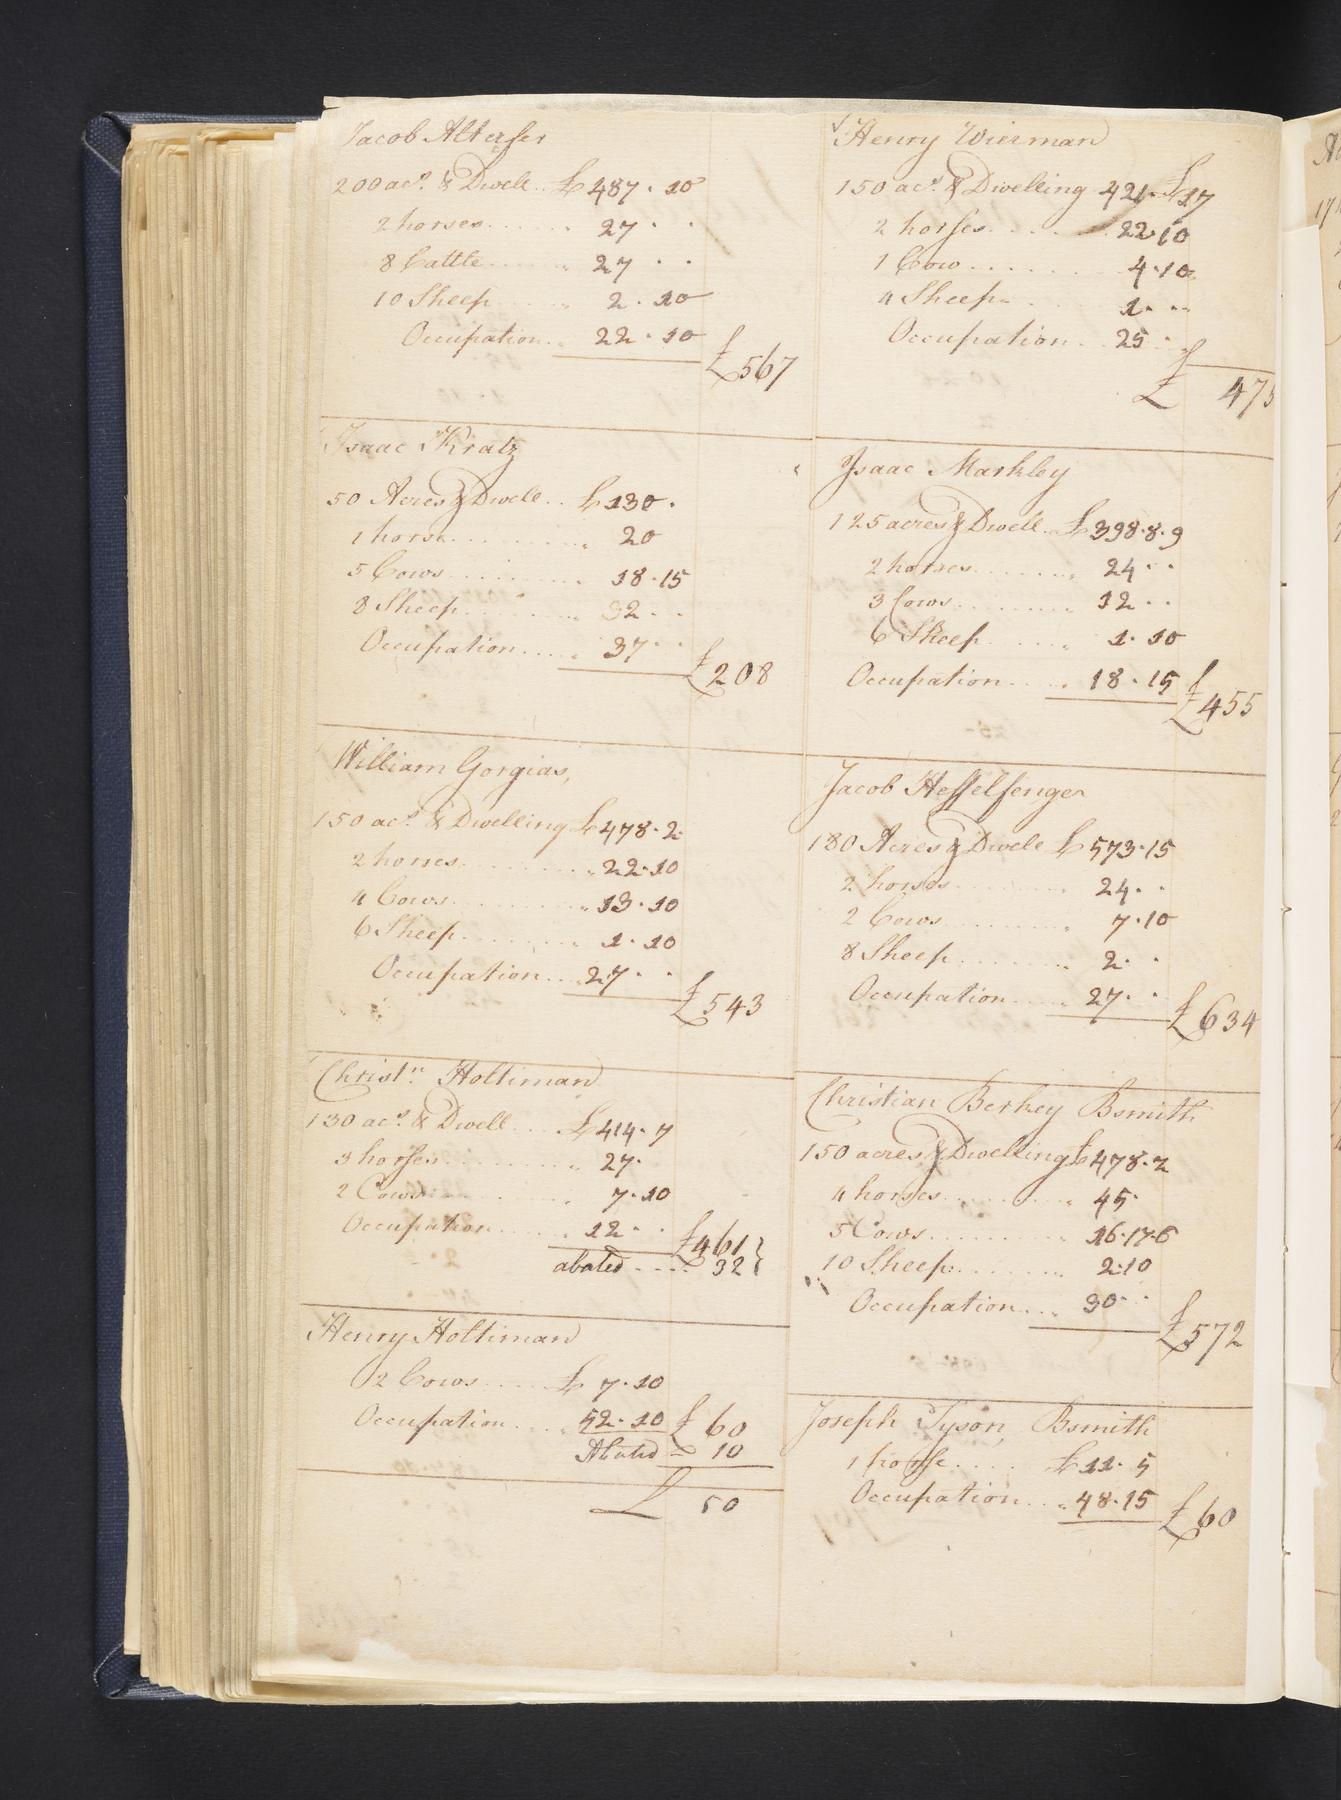 Jacob Alterfer
200 acs. & Dwell.. £487.10
2 horses...... 27..
8 Cattle...... 27..
10 Sheep...... 2.10
Occupation.. 22.10
£567
Isaac Kratz
50 Acres & Dwell.. £130.
1 horse........ 20
5 Cows........ 18.15
8 Sheep........
Occupation..... 37..
£208
William Gorgias,
150 acs. & Dwelling £478.2
2 horses........ 22.10
4 Cows........ 13.10
6 Sheep........ 1.10
Occupation.... 27..
£543
Christn. Holtiman
130 acs. & Dwell... £414.7
3 horses........ 27.
2 Cows........ 7.10
Occupation...... 12..
£461}
abated.... 32}
Henry Holtiman
2 Cows..... £7.10
Occupation.... 52.10 £60
Abated - 10
£ 50
Henry Wierman
150 acs. & Dwelling 421. £17
2 horses...... 22.10
1 Cow........ 4.10
4 Sheep...... 1...
Occupation.. 25.
£ 475
Isaac Markley
125 acres & Dwell.. £398.8.9
2 horses....... 24..
3 Cows........ 12..
6 Sheep...... 1.10
Occupation.... 18.15
£455
Jacob Hesselfenger
180 Acres & Dwell £573.15
2 horses........ 24..
2 Cows........ 7.10
8 Sheep........ 2..
Occupation..... 27..
£634
Christian Berkey Bsmith
150 acres & Dwelling £478.2
4 horses........ 45.
5 Cows........ 16.17.6
10 Sheep........ 2.10
Occupation.... 30..
£572
Joseph Tyson, Bsmith
1 horse.... £11.5
Occupation... 48.15
£60